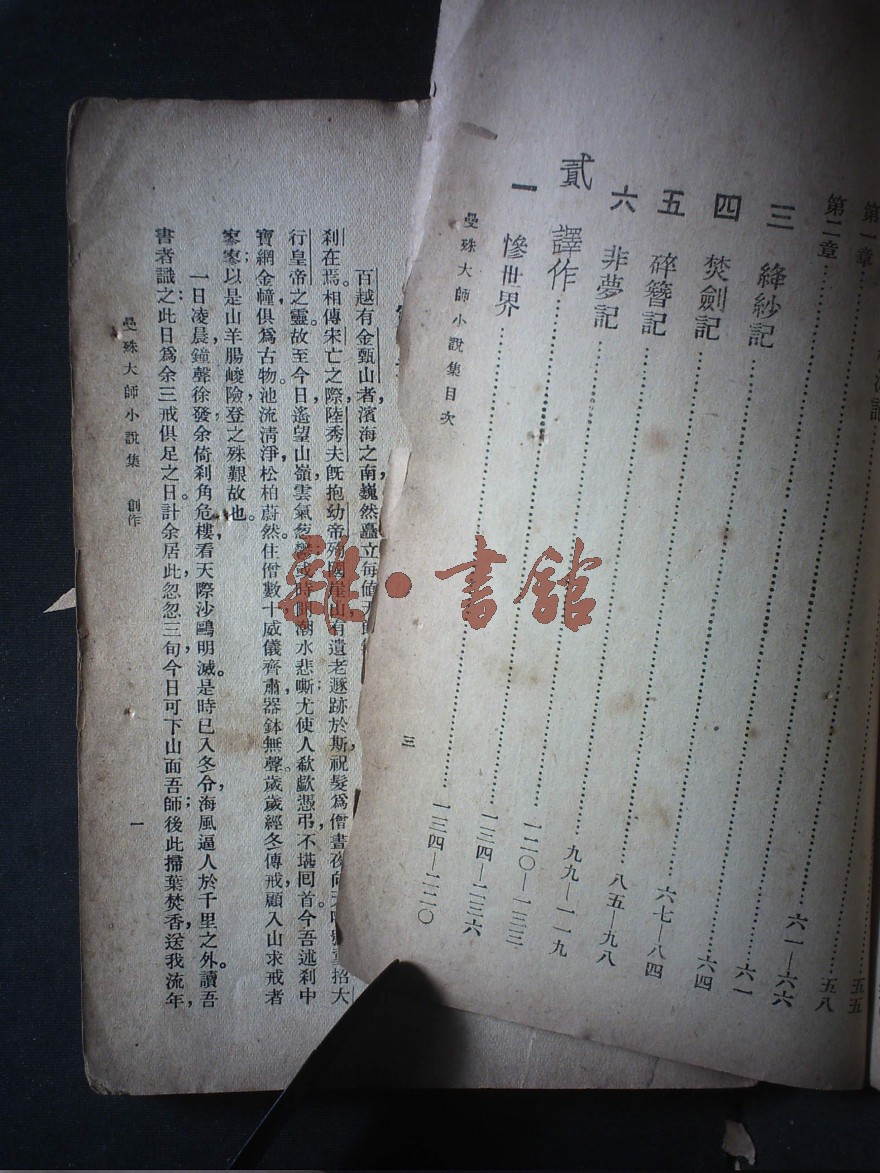 第一章
五五
第二章
五八
三 絳紗記
六一—六六
六一
四 焚劍記
六四
五 碎簪記
六七—八四
六 非夢記
八五—九八
貳 譯作
九九—一一九
一二〇—一三三
一 慘世界
一三四—二三六
一三四—二二〇
曼殊大師小說集目次
三
百越有金甄山者，濱海之南，巍然矗立。每值天
剎在焉。相傳宋亡之際，陸秀夫既抱幼帝殉國崖山，有遺老遯跡於斯，祝髮爲僧，晝夜向天 招大
行皇帝之靈。故至今日，遙望山嶺，雲氣葱鬱；或時聞潮水悲嘶，尤使人欷歔憑弔，不堪回首。今吾述剎中
寶網金幢，俱爲古物。池流清淨，松柏蔚然。住僧數十，威儀齊肅，器鉢無聲。歲歲經冬傳戒，顧入山求戒者
寥寥；以是山羊腸峻險，登之殊艱故也。
一日凌晨，鐘聲徐發，余倚剎角危樓，看天際沙鷗明滅。是時已入冬令，海風逼人於千里之外。讀吾
書者識之：此日爲余三戒俱足之日。計余居此忽忽三旬，今日可下山面吾師；後此掃葉焚香，送我流年，
曼殊大師小說集 創作
一
雜·書館